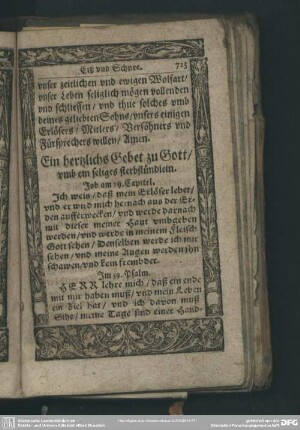 Eiß vnd Schnee. 715
vnser zeitlichen vnd ewigen Wolfart/
vnser Leben seliglich mögen vollenden
vnd schliessen/ vnd thue solches vmb
deines geliebten Sohns/ vnsers einigen
Erlösers/ Mitlers/ Versöhners vnd
Fürsprechers willen/ Amen.
Ein hertzlichs Gebet zu Gott/
vmb ein seliges sterbstündlein.
Job am 19. Capitel.
Ich weis/ daß mein Erlöser lebet/
vnd er wird mich hernach aus der Er-
den aufferwecken/ vnd werde darnach
mit dieser meiner Haut vmbgeben
werden/ vnd werde in meinem Fleisch
Gott sehen/ Denselben werde ich mir
sehen/ vnd meine Augen werden ihn
schawen/ vnd kein frembder.
Im 39. Psalm.
HERR lehre mich/ daß ein ende
mit mir haben muß/ vnd mein Leben
ein Ziel hat/ vnd ich davon muß
Sihe/ meine Tage sind einer Hand-